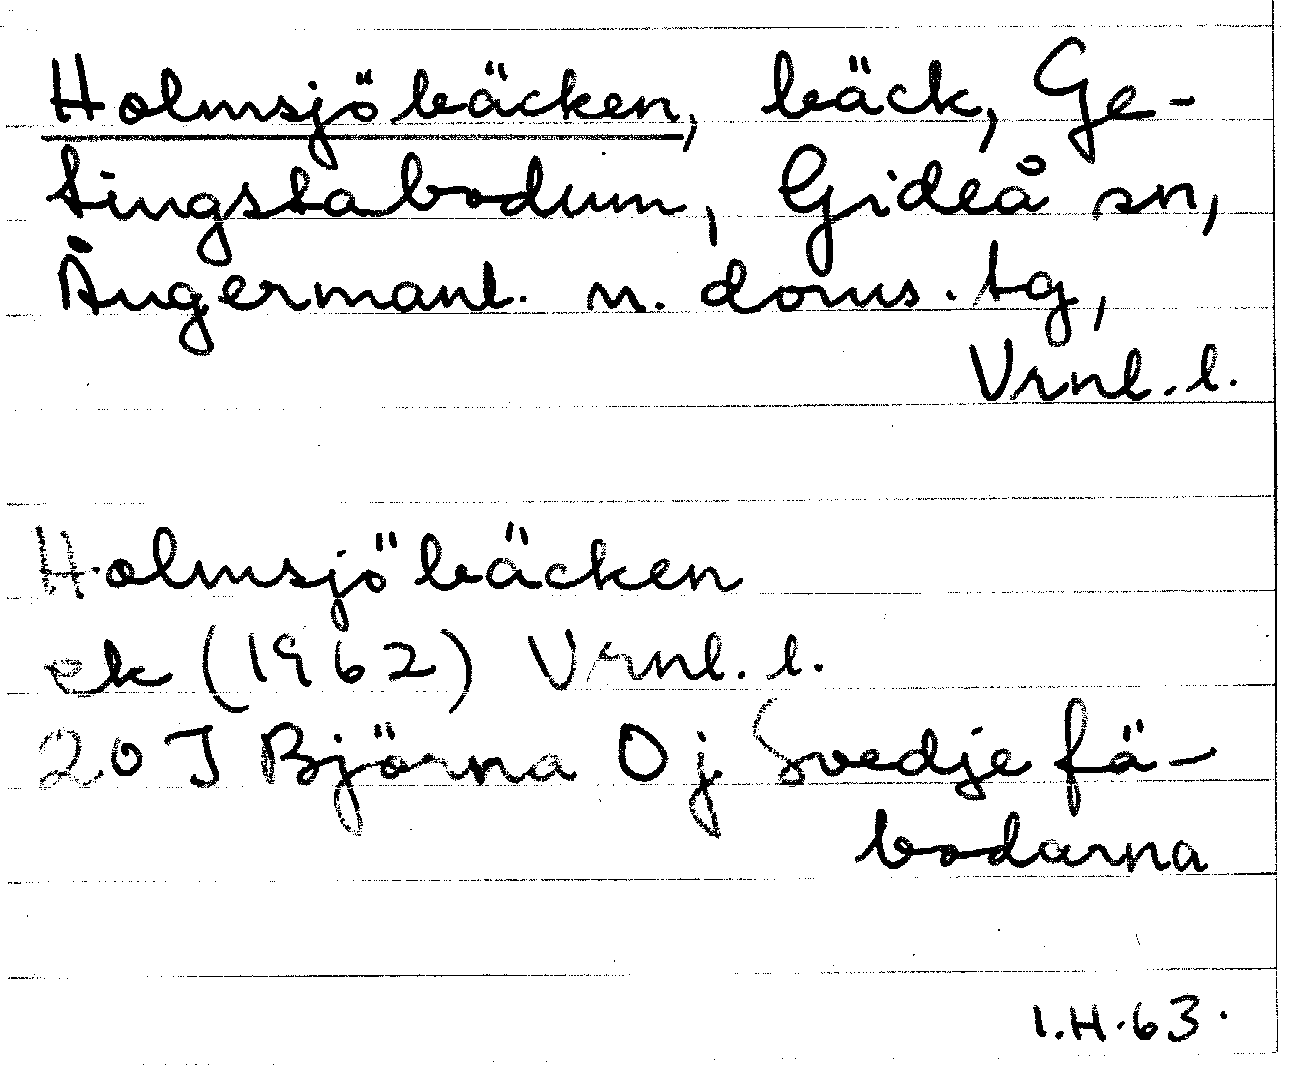 Holmsjöbäcken, bäck, Ge-
tingstabodum, Gideå sn,
Ångermanl. n. doms. tg,
Vrnl. l.
Holmsjöbäcken
ek (1962) Vrnl. l.
20 J Björna 0 j Svedje fä-
bodarna
I.H.63.